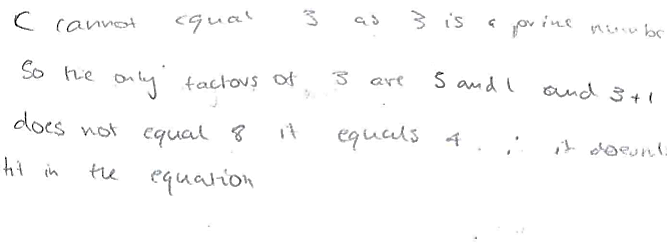 C cannot equal 3 as 3 is a prime numbe
So the only factors of 3 are 3 and 1 and 3+1
does not equal 8 it equals 4. ∴ it doesnt
fit in the equation